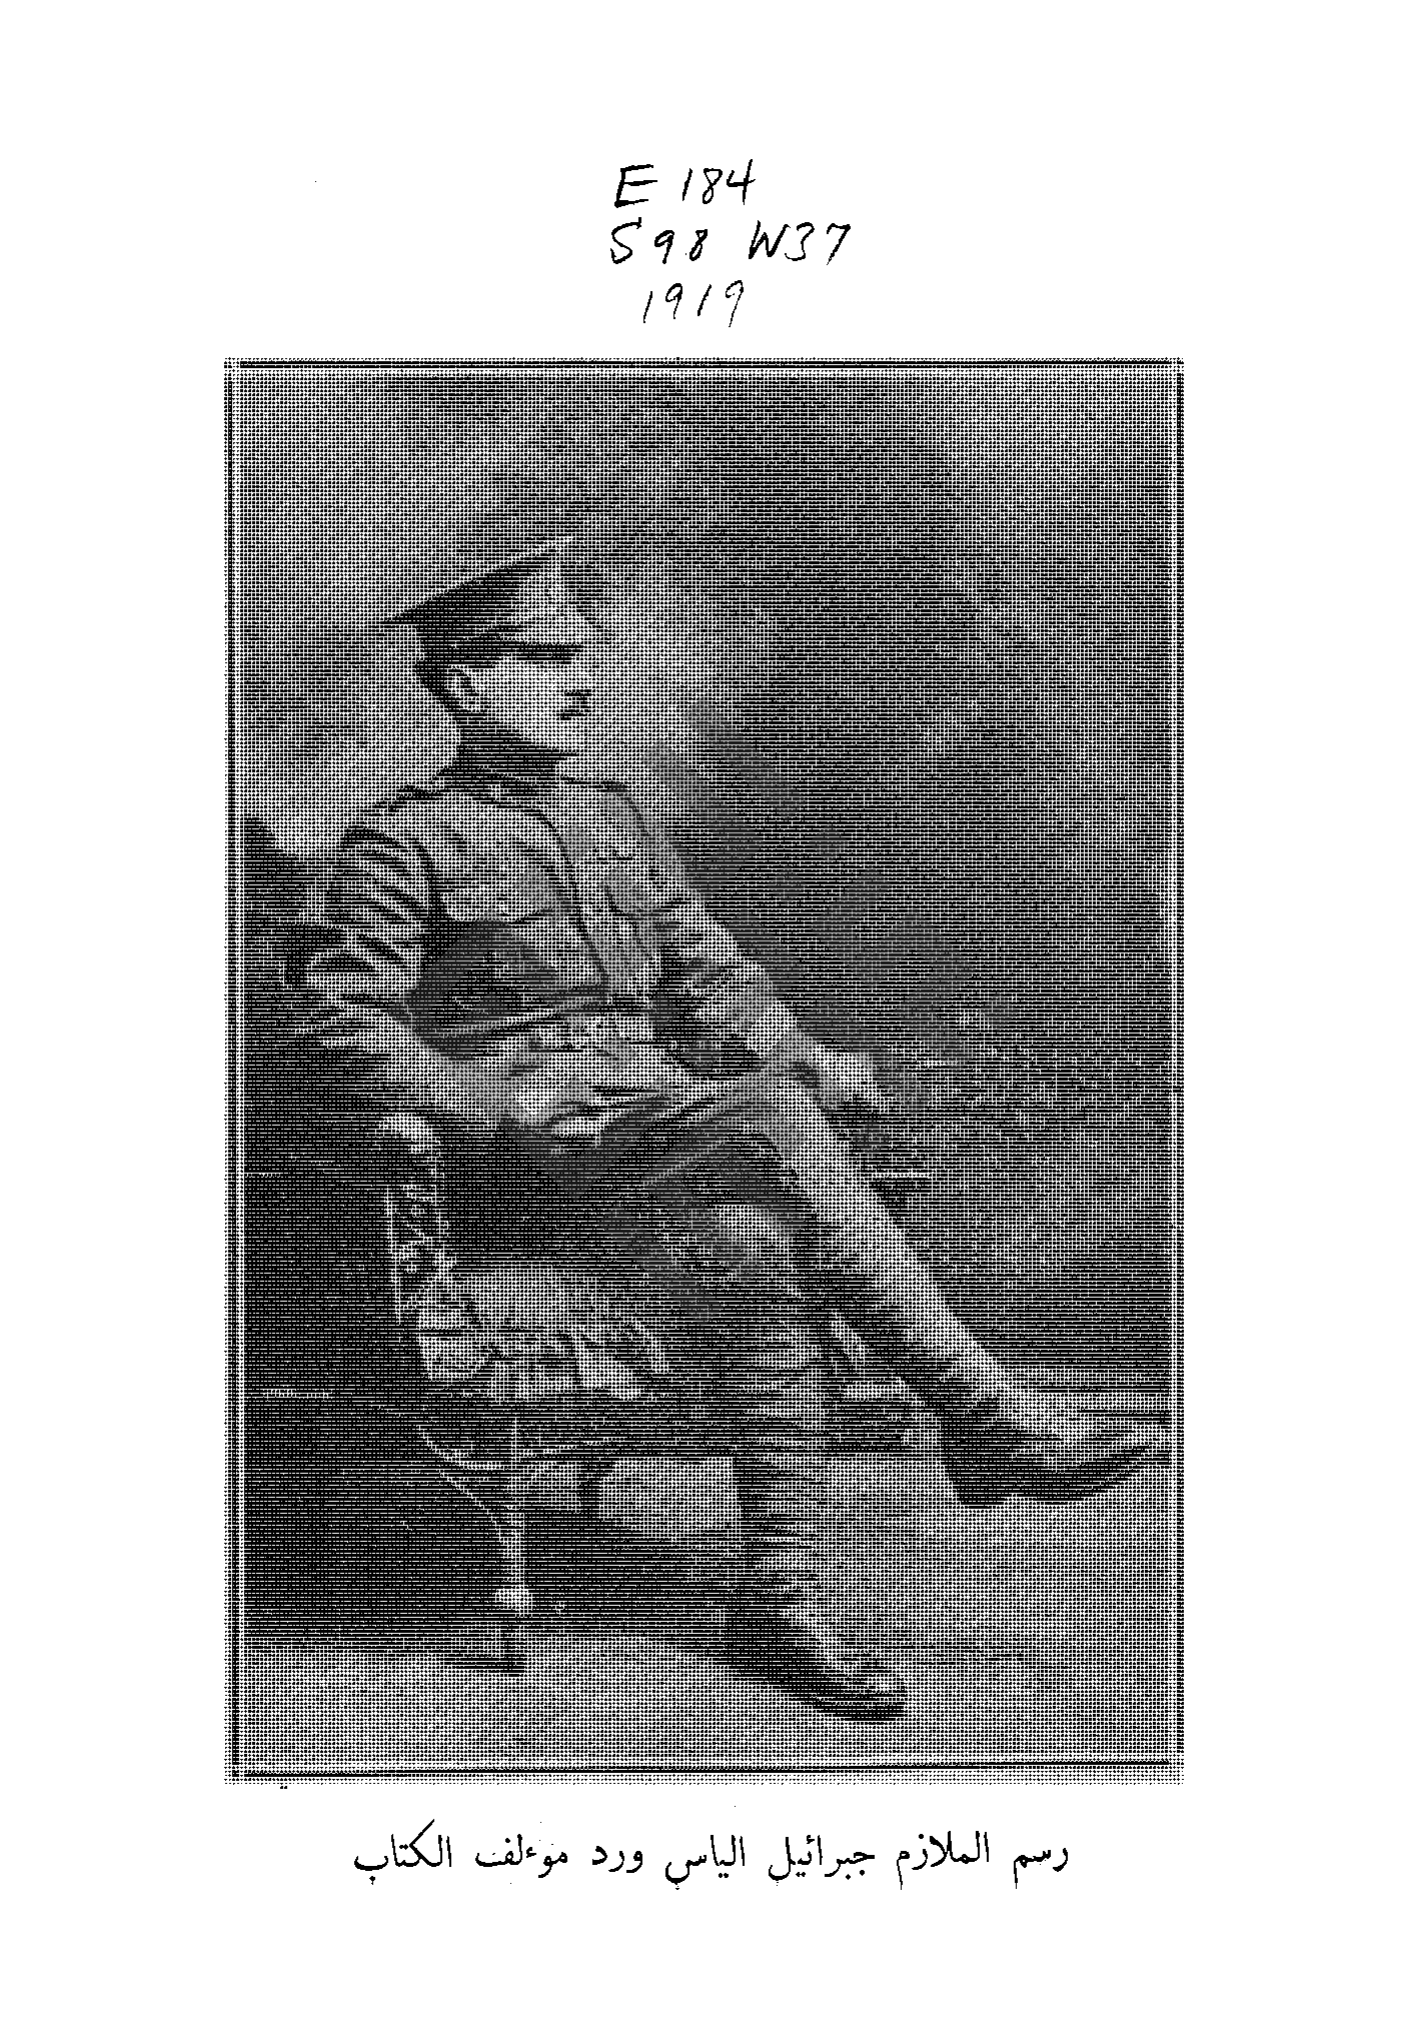 E 184
S98 W37
1919
رسم الملازم جبرائيل الياس ورد موءلف الكتاب